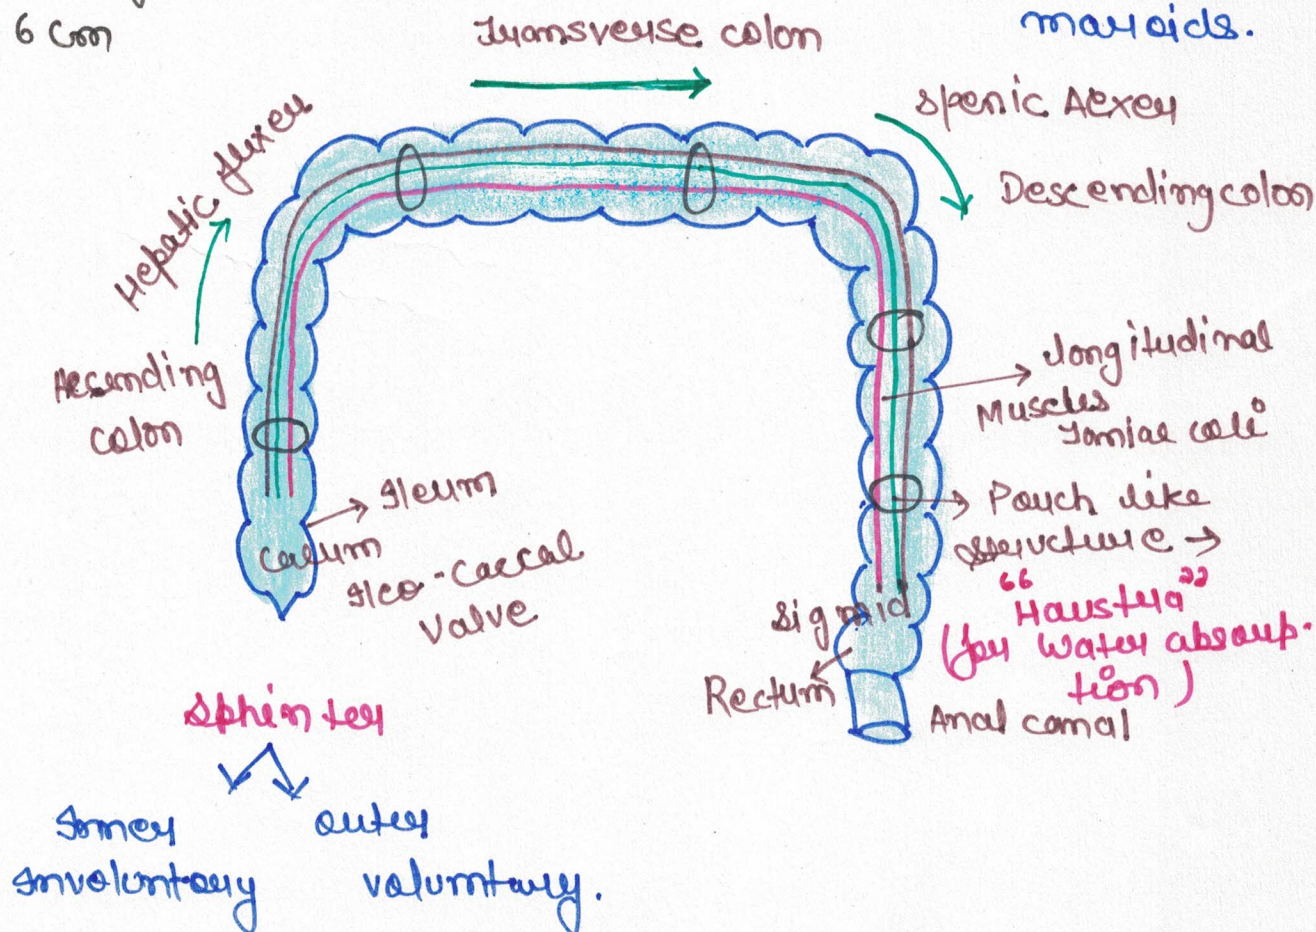 6 Cm
Transverse colon
maroids.
Hepatic flexer
Spenic flexer
Descending colon
Ascending
colon
longitudinal
Muscles
Taniae coli
Ileum
Caecum
Ileo-Caecal
Valve
Pouch like
structure →
"Haustra"
(for Water absorp-
tion)
Sigmid
Rectum
Anal canal
Sphinter
Inner
outer
Involuntary
voluntary.